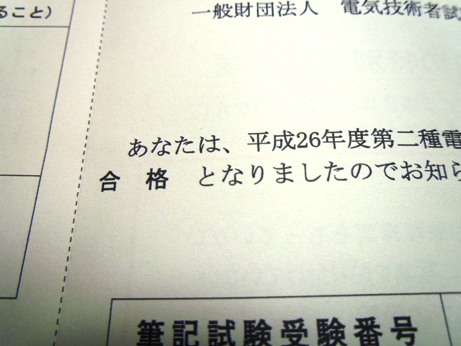 ること)
一般財団法人 電気技術者試
あなたは、平成26年度第二種電
合 格 となりましたのでお知ら
筆記試験受験番号